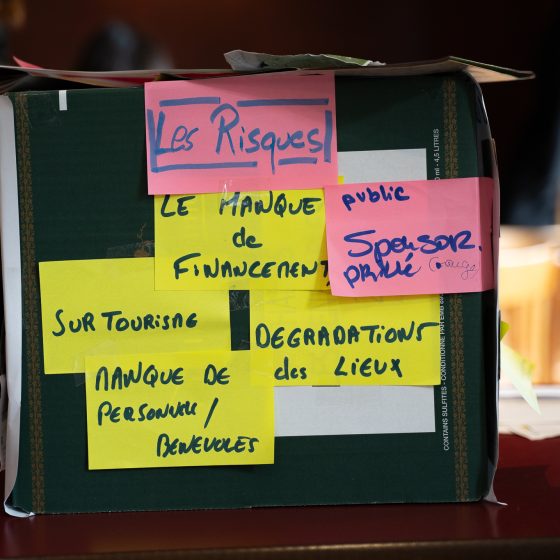 Les Risques
LE MANQUE
de
FINANCEMENT
public
SPONSOR
privé
SURTOURISME
DEGRADATIONS
des LIEUX
MANQUE DE
PERSONNEL /
BENEVOLES
CONTAINS SULFITES - CONDITIONNÉ PAR
ml - 4,5 LITRES